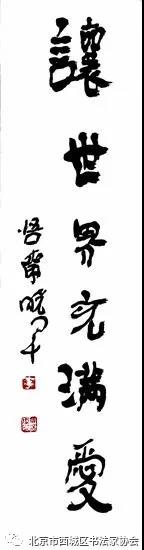 讓世界充滿愛
悟齋曉千
北京市西城区书法家协会